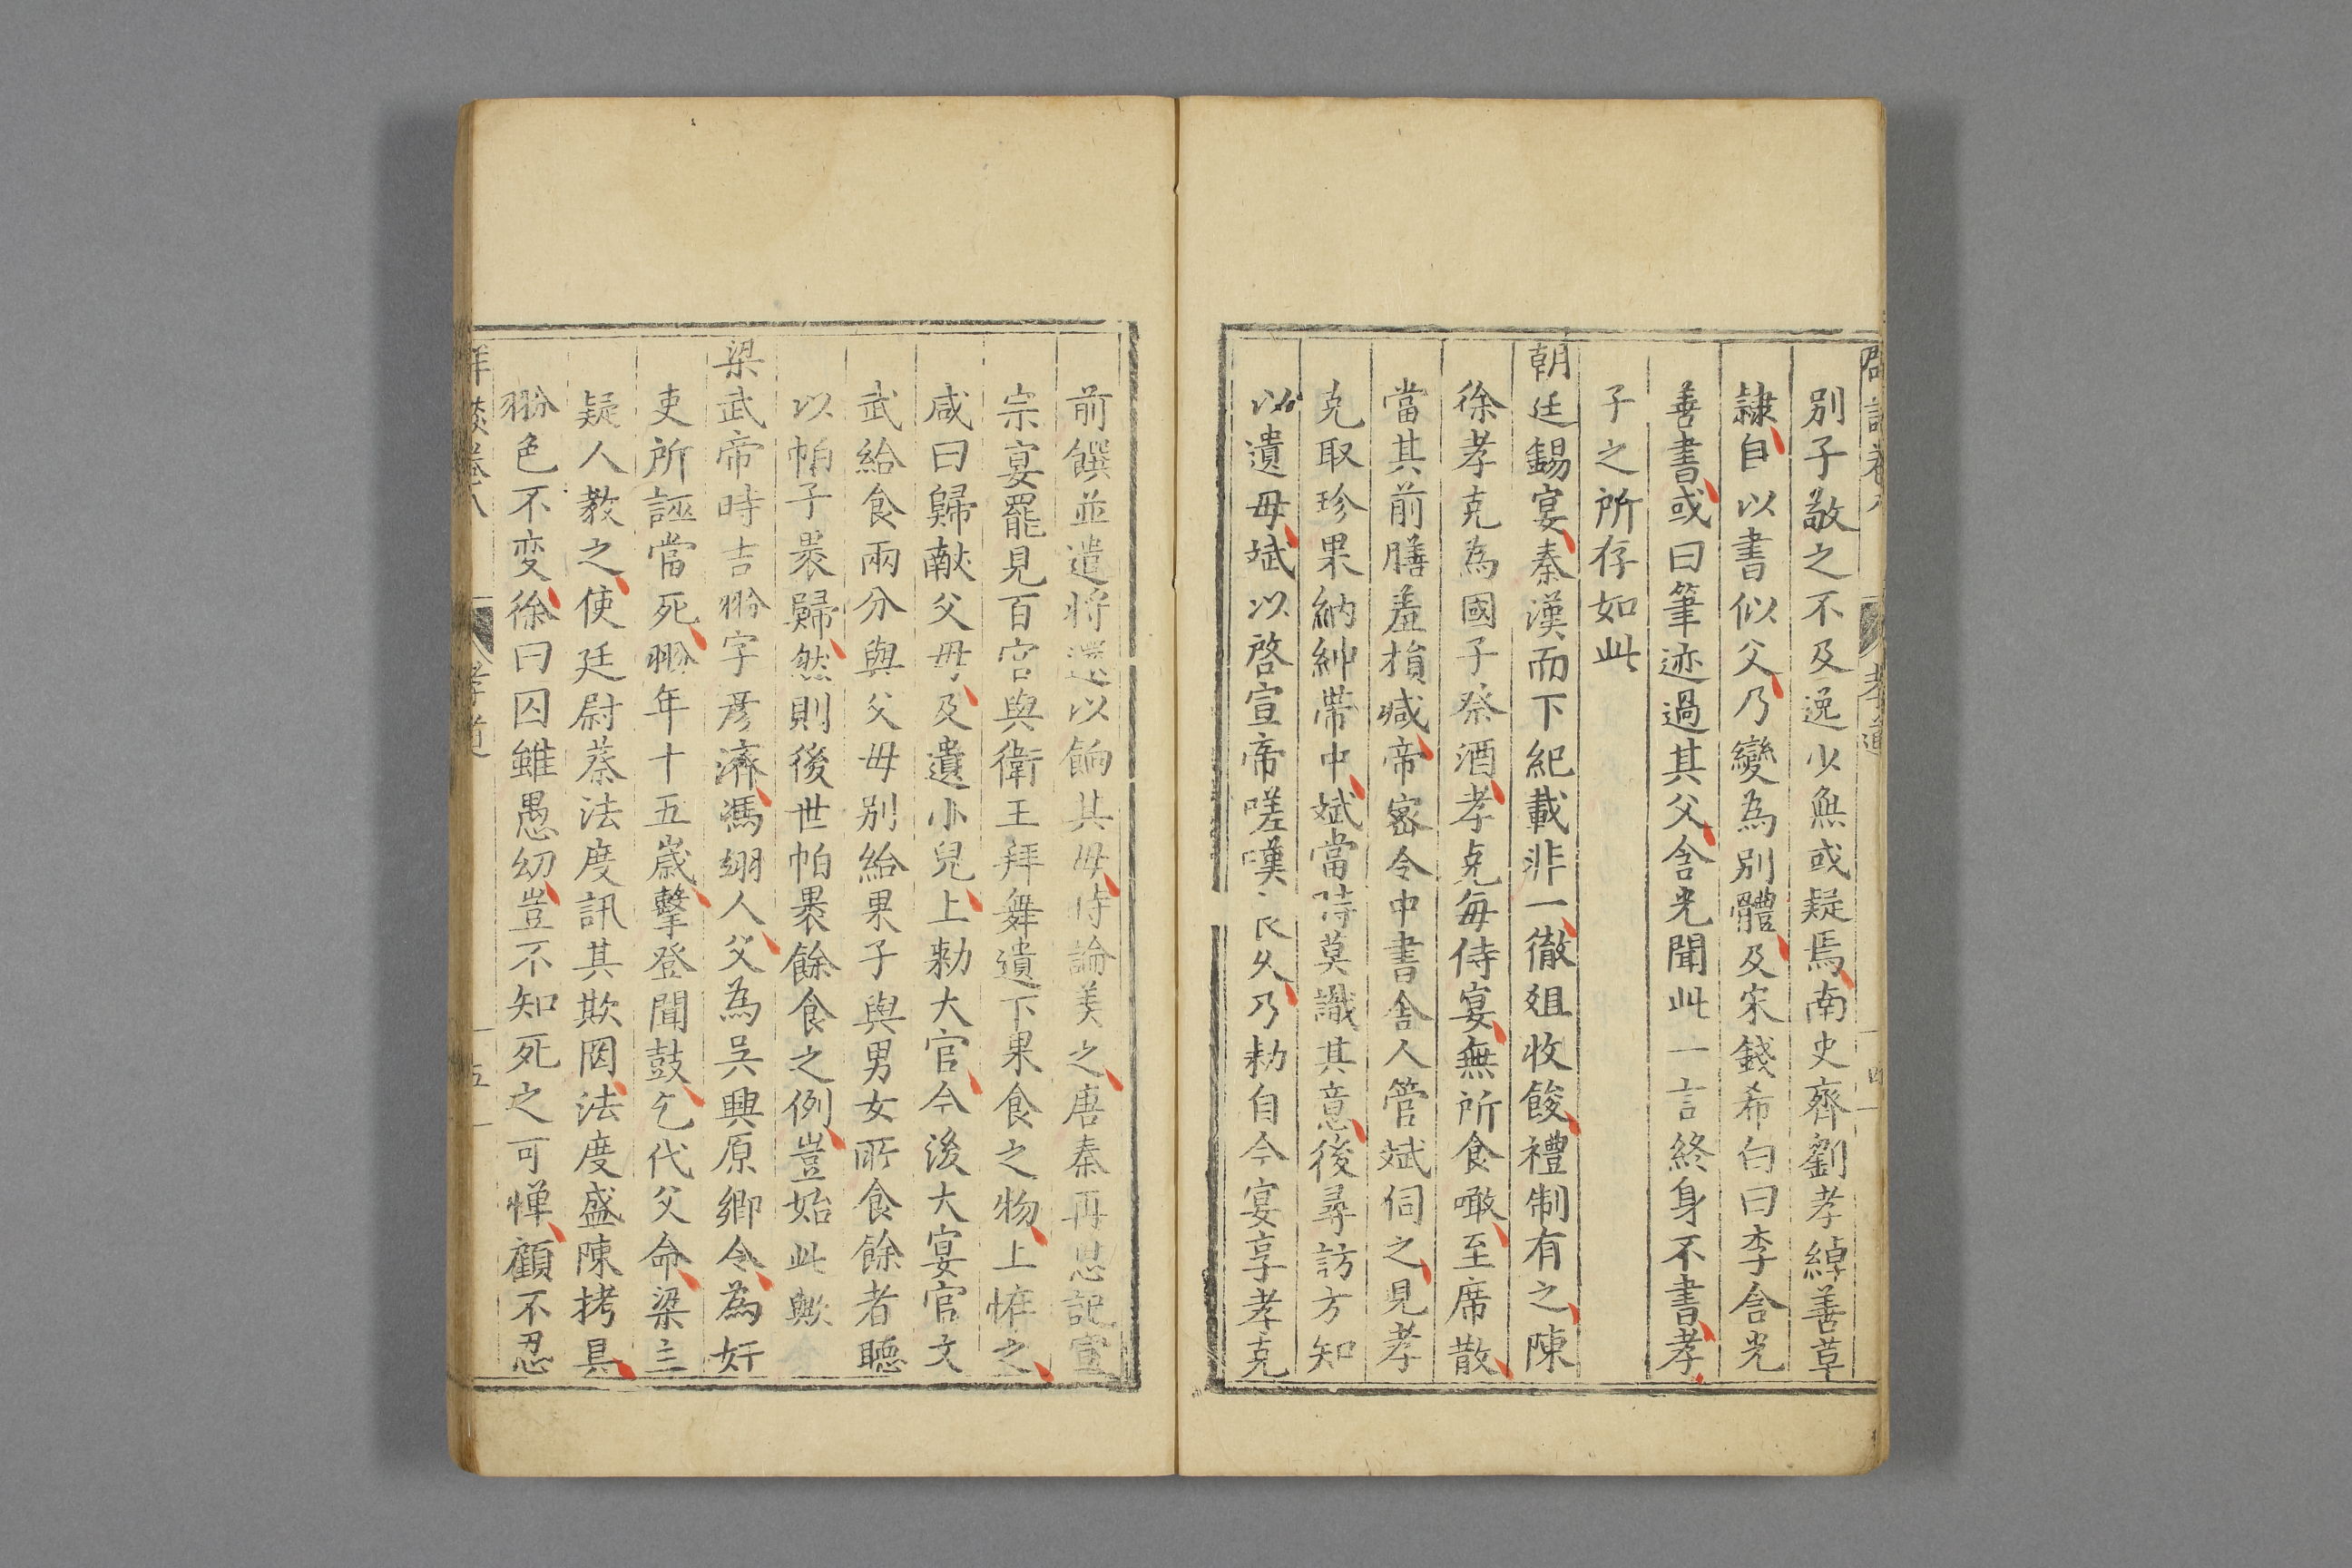 別子敬之不及逸少無或疑焉南史齊劉孝綽善草
隷自以書似父乃變為別體及宋錢希白曰李含光
善書或曰筆迹過其父含光聞此一言終身不書孝
子之所存如此
朝廷錫宴秦漢而下紀載非一徹爼收餕禮制有之陳
徐孝克為國子祭酒孝克每侍宴無所食噉至席散
當其前膳羞損减帝宻令中書舍人管斌伺之見孝
克取珍果納紳帶中斌當時莫識其意後尋訪方知
以遺母斌以啓宣帝嗟嘆良久乃勑自今宴享孝克
前饌並遣將還以餉其母時論美之唐秦再思記宣
宗宴罷見百官與衛王拜舞遺下果食之物上恠之
咸曰歸献父母及遺小兒上勑大官今後大宴官文
武給食兩分與父母別給果子與男女所食餘者聴
以帕子褁歸然則後世帕褁餘食之例豈始此歟
梁武帝時吉翂字彦濟馮翊人父為吴興原鄉令為奸
吏所誣當死翂年十五嵗擊登聞鼓乞代父命梁主
疑人教之使廷尉蔡法度訊其欺罔法度盛陳拷具
翂色不变徐曰囚雖愚幼豈不知死之可惮顧不忍
羣談卷八 孝道 五